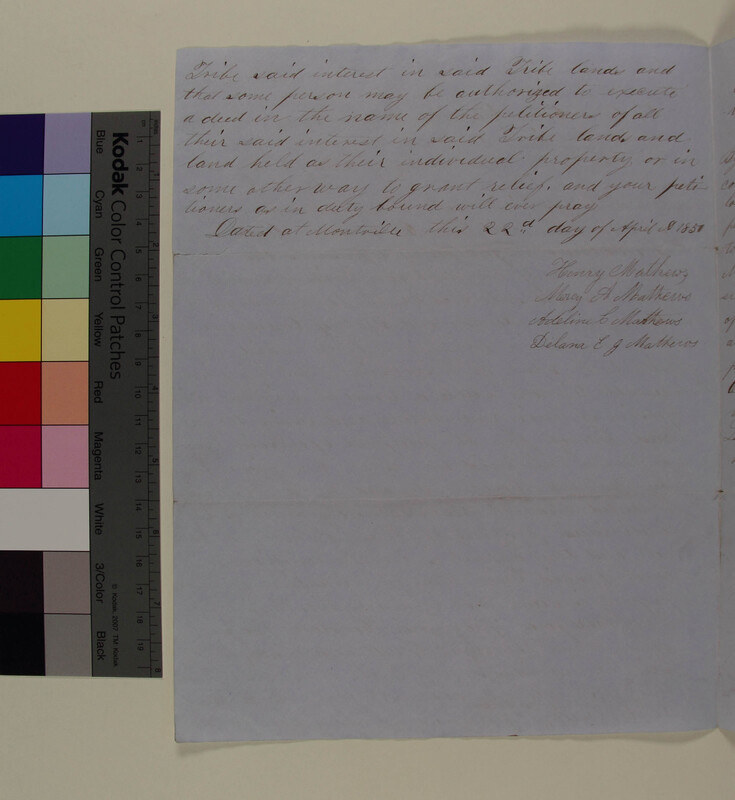 Tribe said interest in said Tribe lands and
that some person may be authorized to execute
a deed in the name of the petitioners of all
their said interest in said Tribe lands and
land held as their individual property or in
some other way to grant relief, and your peti-
tioners as in duty bound will ever pray
Dated at Montville this 22d day of April
Henry Mathews
Mercy A Mathews
Adeline C Mathews
Delana E J Mathews
Kodak Color Control Patches
Blue
Cyan
Green
Yellow
Red
Magenta
White
3/Color
Black
© Kodak, 2007 TM: Kodak
1
2
3
4
5
6
7
8
9
10
11
12
13
14
15
16
17
18
19